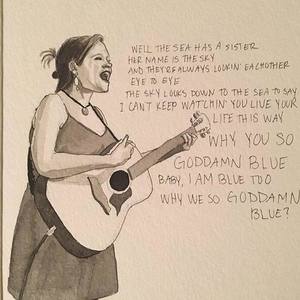 WELL THE SEA HAS A SISTER
HER NAME IS THE SKY
AND THEY'RE ALWAYS LOOKIN' EACHOTHER
EYE TO EYE
THE SKY LOOKS DOWN TO THE SEA TO SAY
I CAN'T KEEP WATCHIN' YOU LIVE YOUR
LIFE THIS WAY
WHY YOU SO
GODDAMN BLUE
BABY, I AM BLUE TOO
WHY WE SO GODDAMN
BLUE?